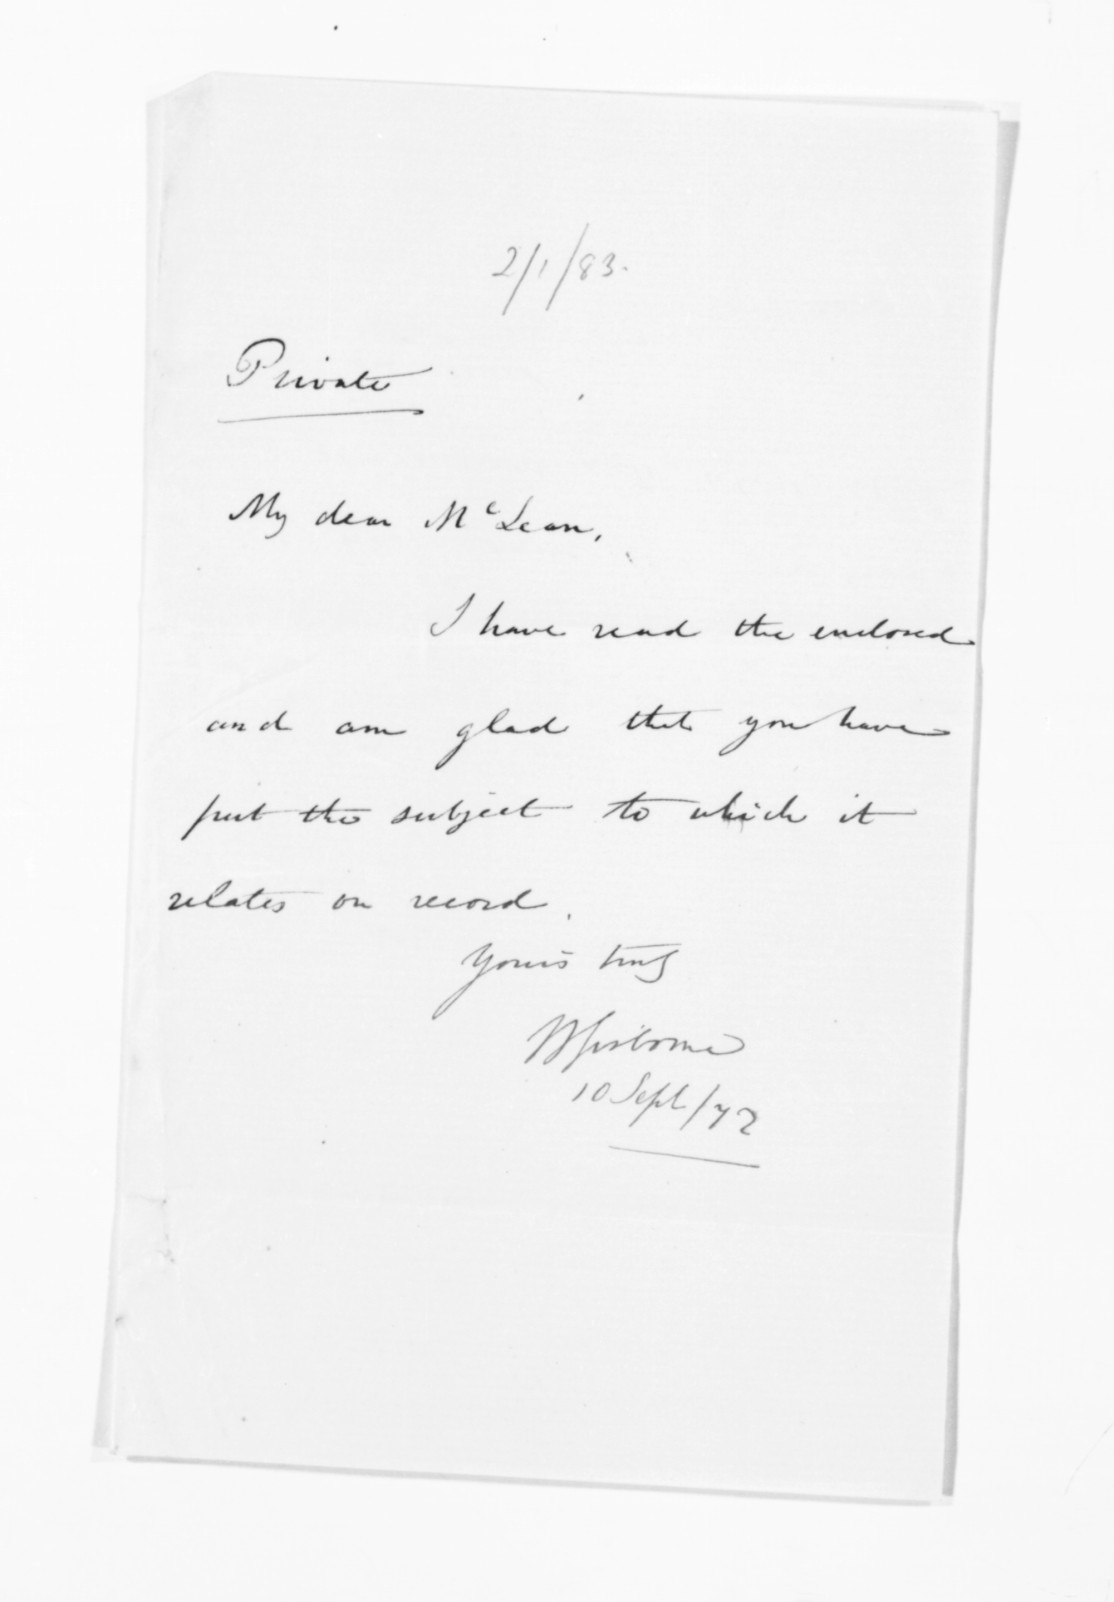 2/1/83.
Private
My dear McLean,
I have read the enclosed
and am glad that you have
put the subject to which it
relates on record.
Yours truly
WGisborne
10 Sept/72